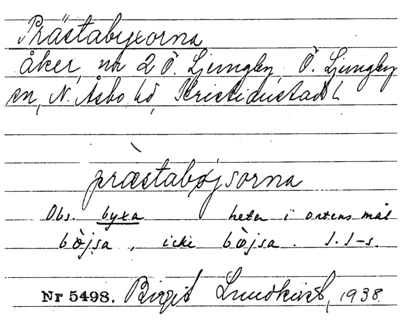 Prästabyxorna
åker, nr 2 Ö. Ljungby, Ö. Ljungby
sn, N. Åsbo hd, Kristianstad l
præstabøjsorna
Obs. byxa heter i ortens mål
bøjsa, icke bøjsa. I. I-s.
Nr 5498. Birgit Lundkvist, 1938